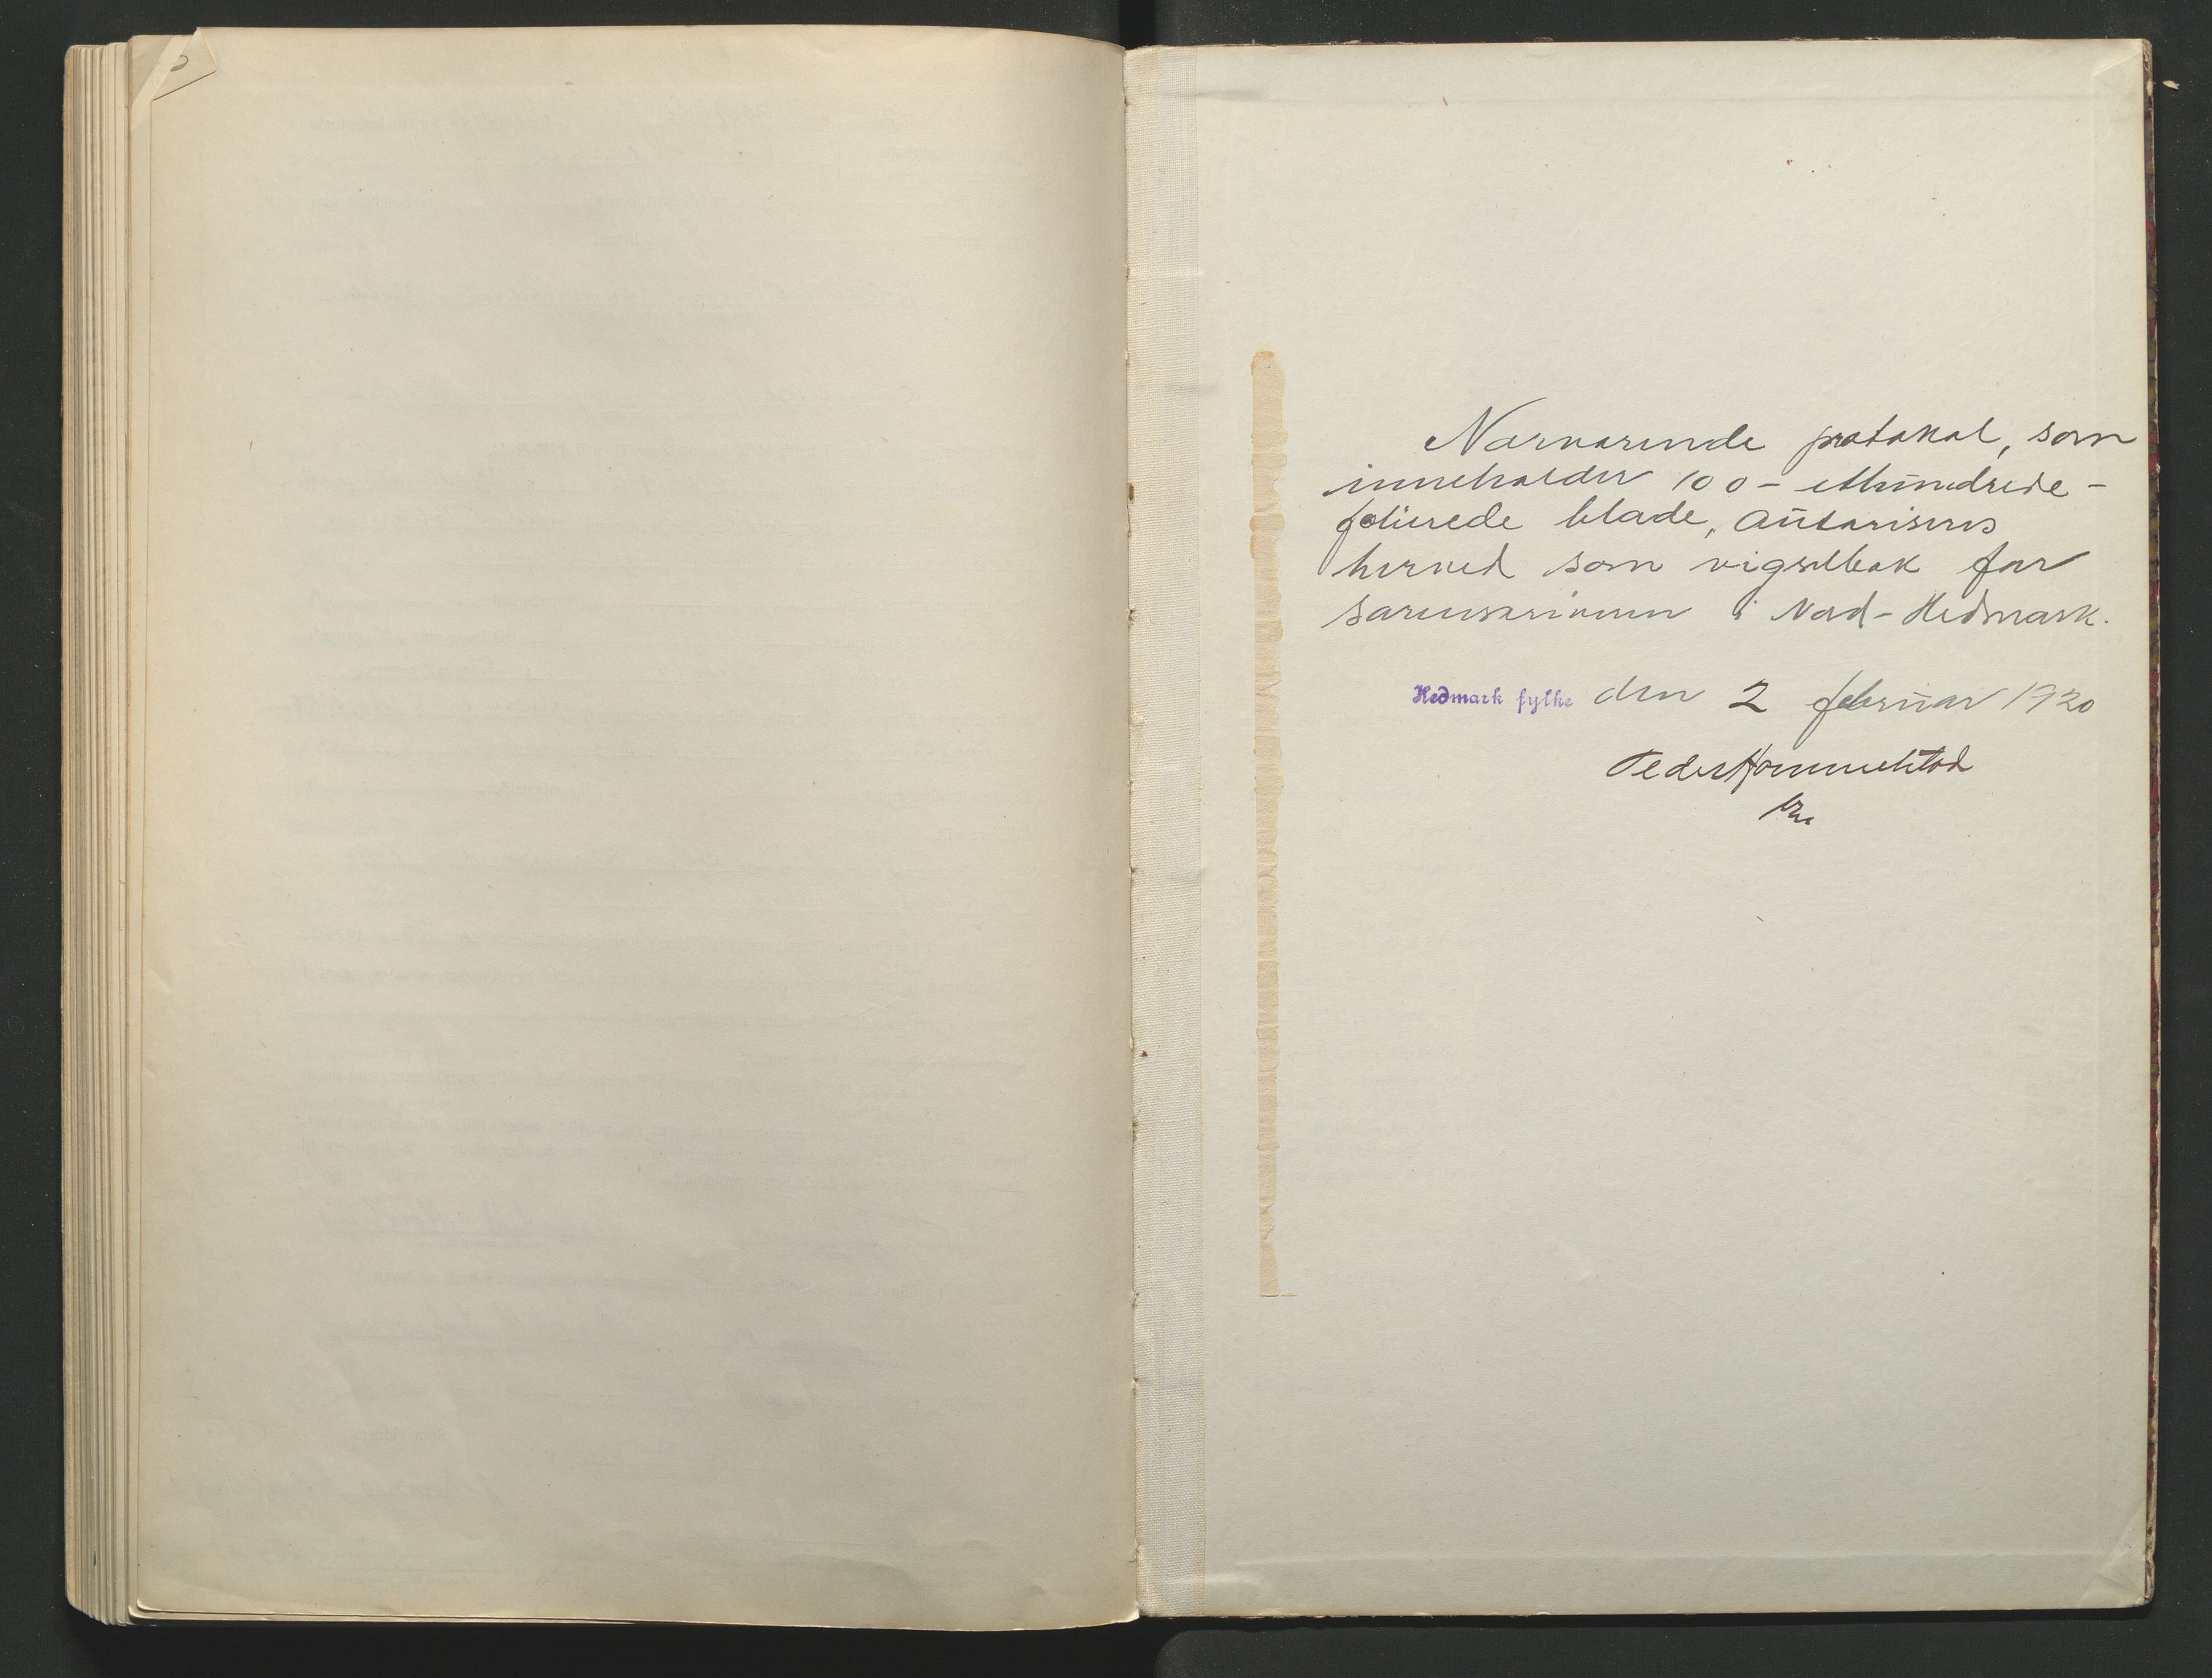 Nærværende protokol, som
inneholder 100 - ethundrede -
folierede blade, autoriseres
herved som vigselbok for
sorenskriveren i Nord-Hedmark.
Hedmark fylke den 2 februar 1920
Peder